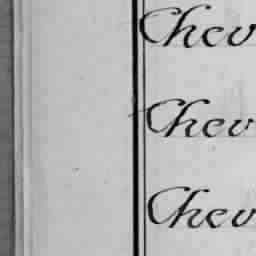 Chev
Chev
Chev